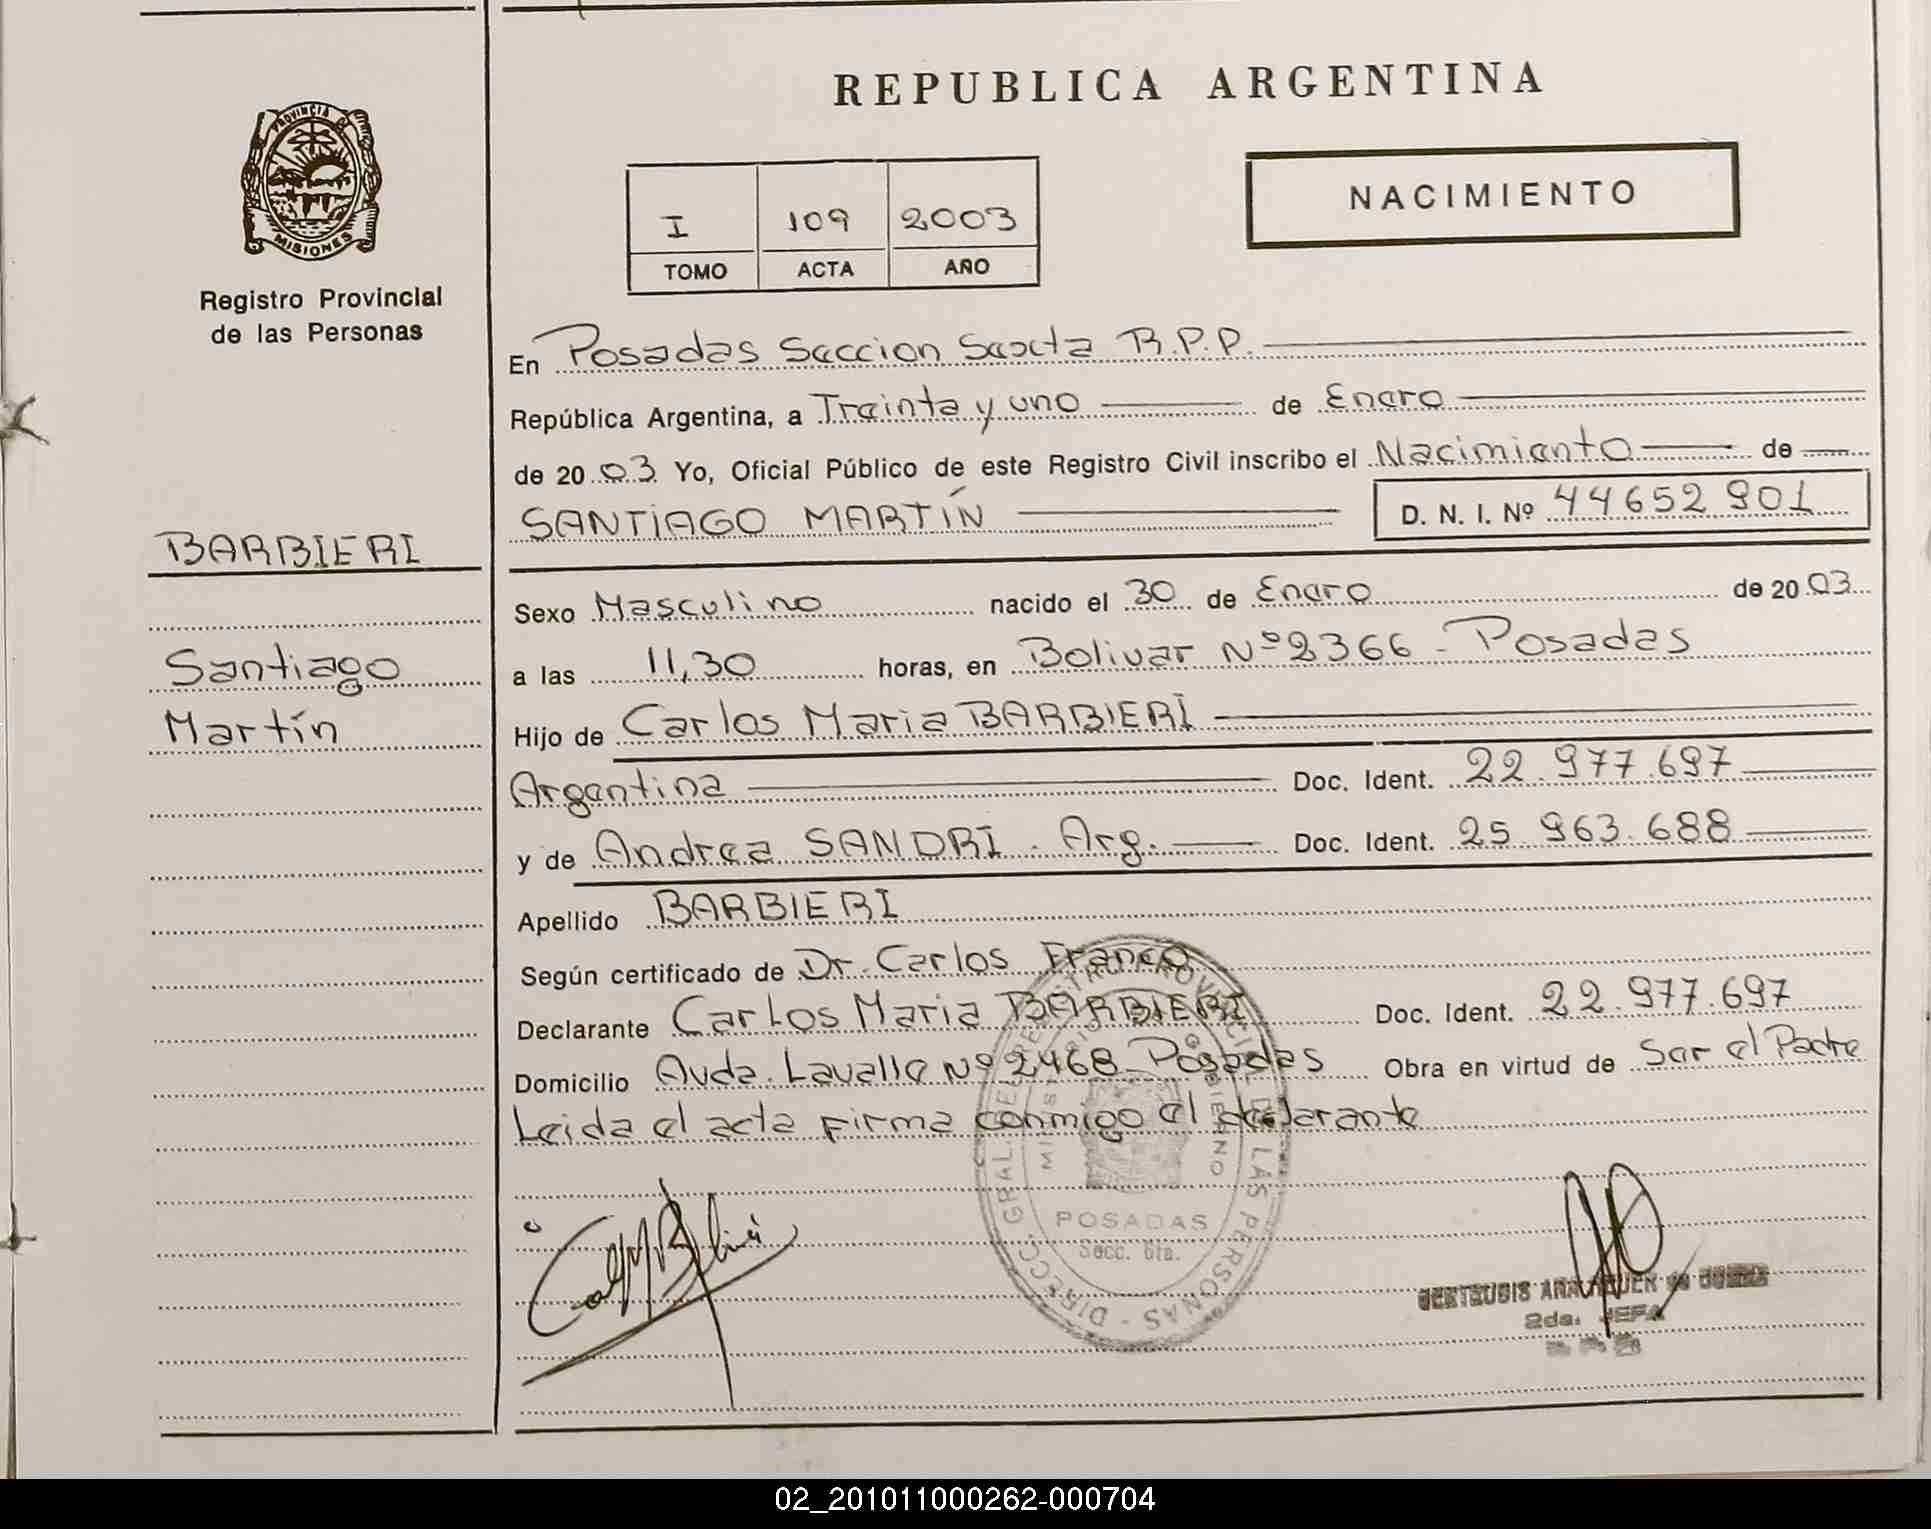 REPUBLICA ARGENTINA
PROVINCIA DE
MISIONES
Registro Provincial
de las Personas
I 109 2003
TOMO ACTA AÑO
NACIMIENTO
En Posadas Seccion Sexta R.P.P.
República Argentina, a Treinta y uno de Enero
de 2003 Yo, Oficial Público de este Registro Civil inscribo el Nacimiento de
SANTIAGO MARTÍN D. N. I. Nº 44652901
BARBIERI
Santiago
Martín
Sexo Masculino nacido el 30 de Enero de 2003
a las 11,30 horas, en Bolivar Nº 2366 - Posadas
Hijo de Carlos Maria BARBIERI
Argentina Doc. Ident. 22.977.697
y de Andrea SANDRI. Arg. Doc. Ident. 25.963.688
Apellido BARBIERI
Según certificado de Dr. Carlos Franco
Declarante Carlos Maria BARBIERI Doc. Ident. 22.977.697
Domicilio Avda. Lavalle Nº 2468 - Posadas Obra en virtud de Ser el Padre
Leida el acta firma conmigo el declarante
DIRECC. GRAL. DE REGISTRO PROVINCIAL DE LAS PERSONAS
MINISTERIO DE GOBIERNO
POSADAS
Secc. 6ta.
GERTRUDIS
2da. JEFA
02_201011000262-000704